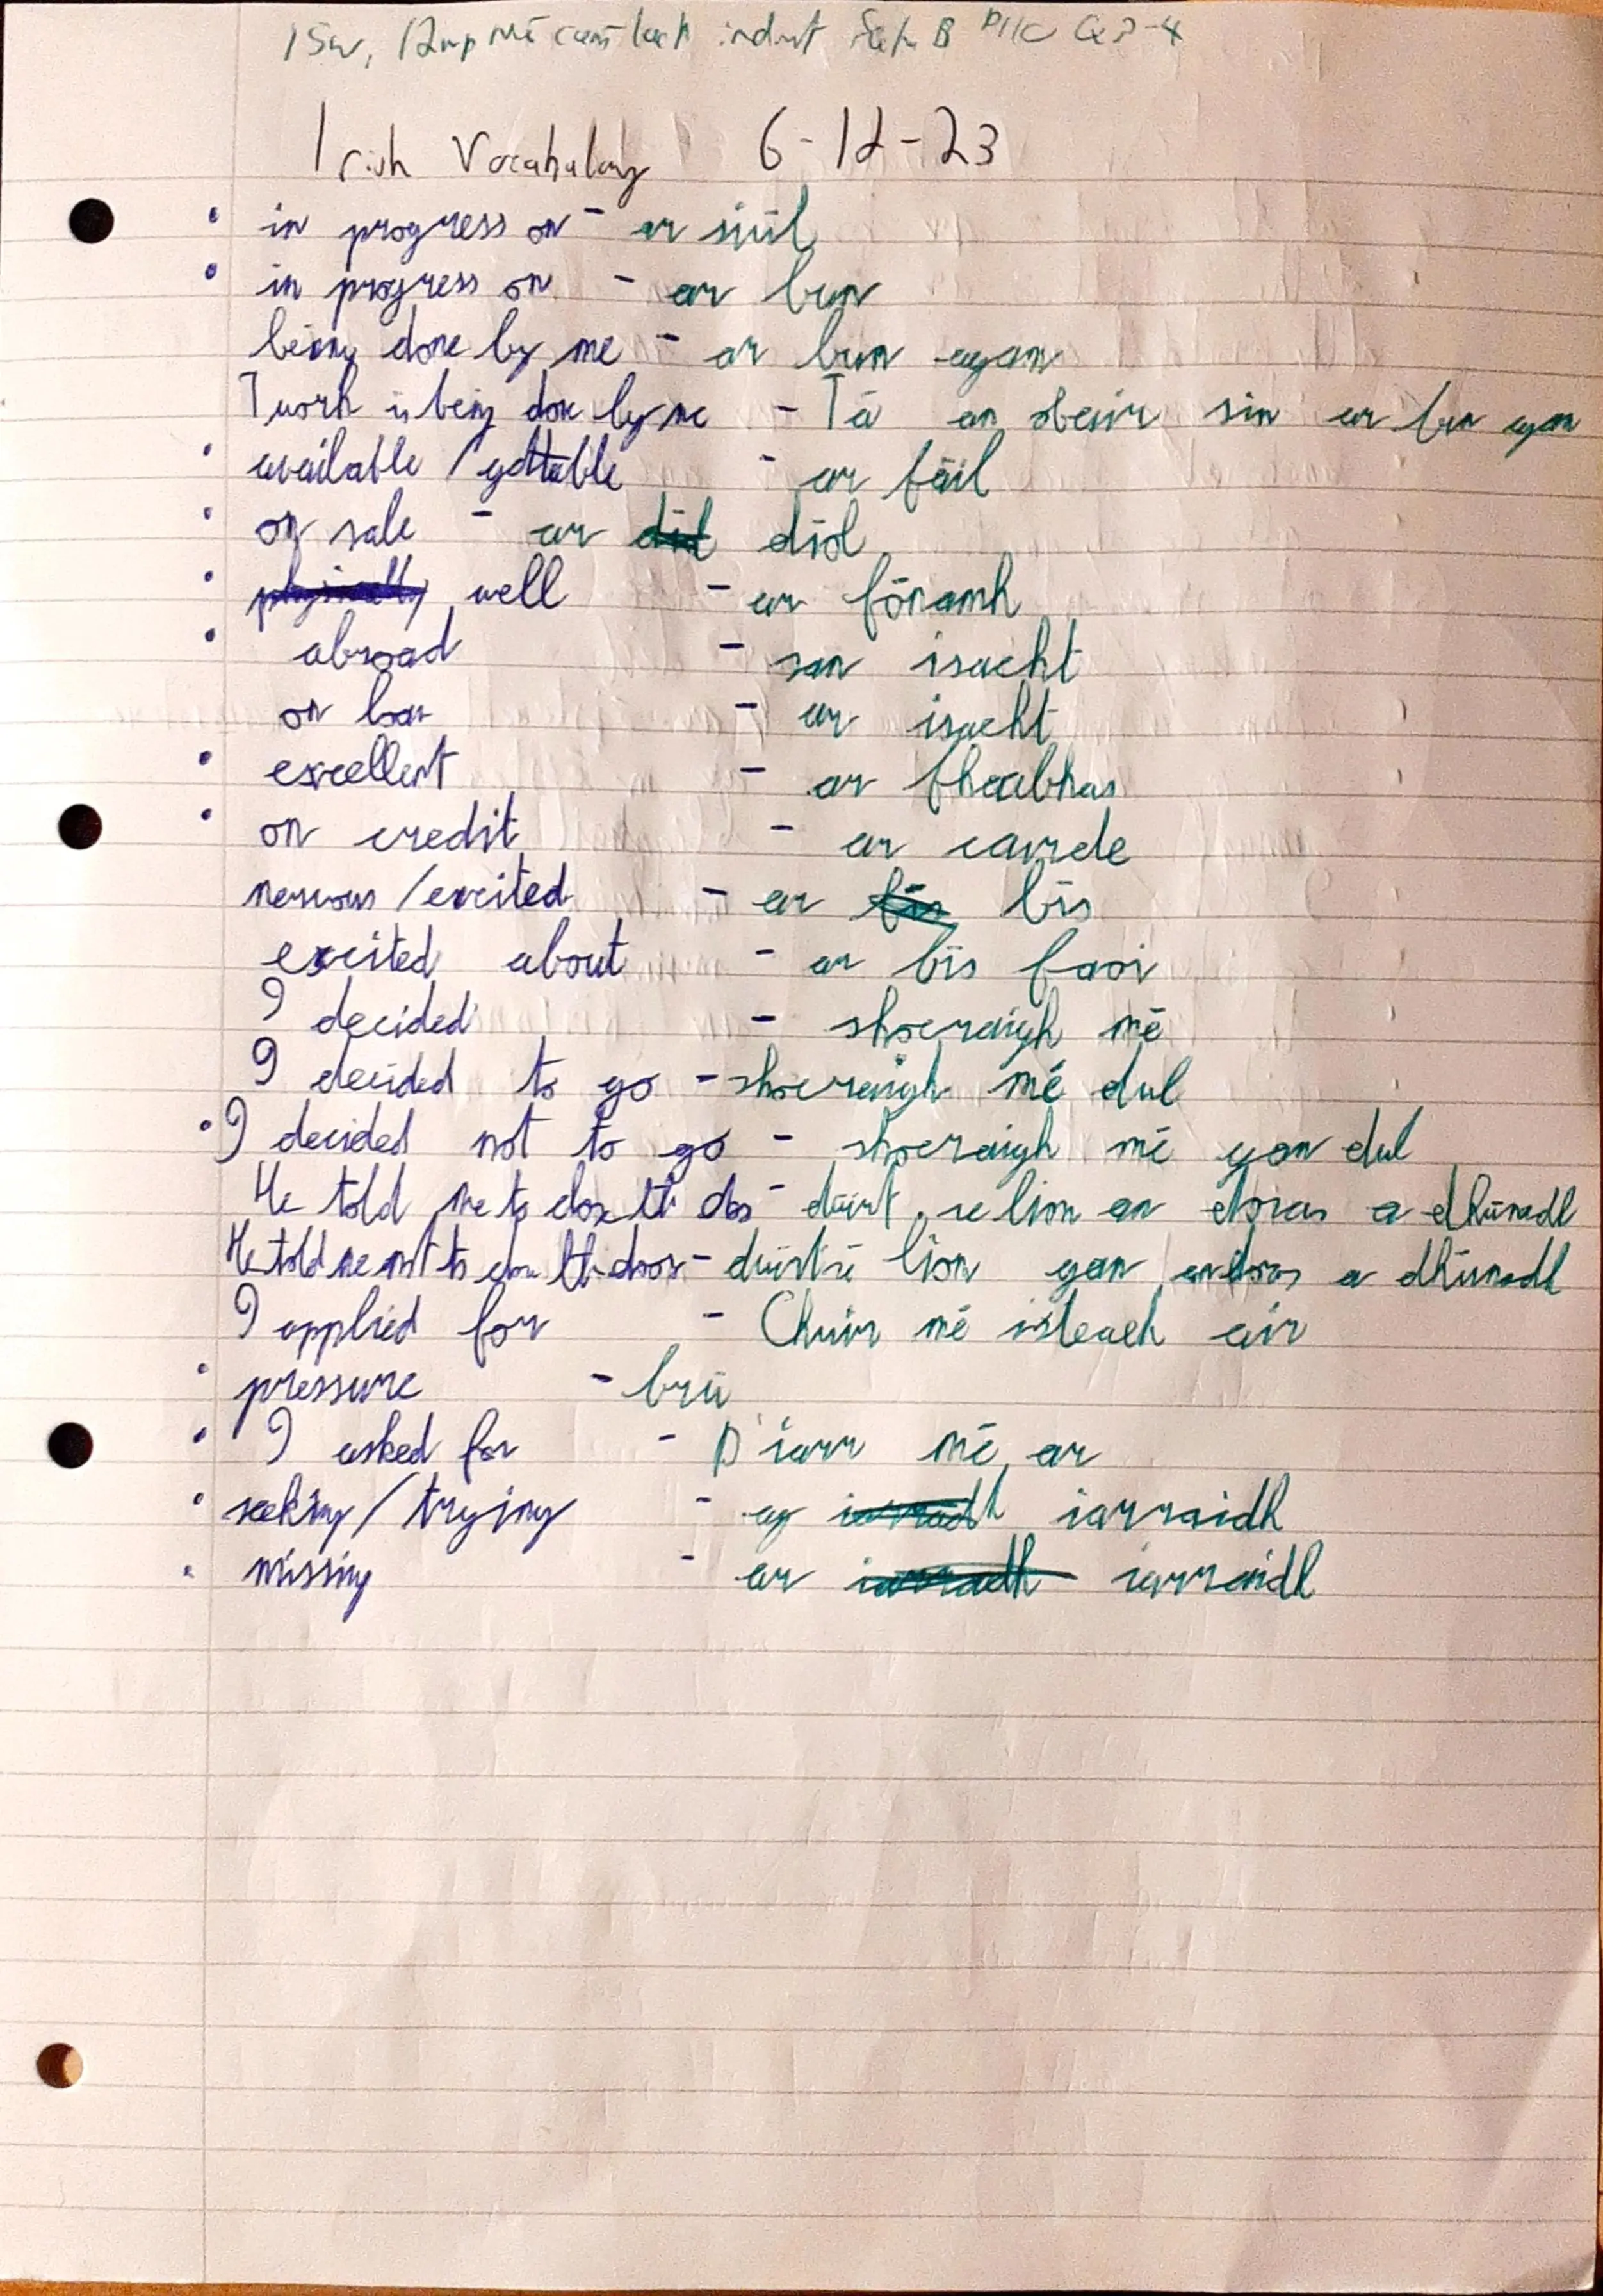 Irish Vocabulary 6-12-23
in progress on - ar siúl
in progress on - ar bun
being done by me - ar bun agam
work is being done by me - Tá an obair sin ar bun agam
available / gettable - ar fáil
on sale - ar díol
well - ar fónamh
abroad - san isacht
on loan - ar isacht
excellent - ar fheabhas
on credit - ar cairde
nervous / excited - ar bís
excited about - ar bís faoi
I decided - shocraigh mé
I decided to go - shocraigh mé dul
I decided not to go - shocraigh mé gan dul
He told me to close the door - dúirt sé liom an doras a dhúnadh
He told me not to close the door - dúirt sé liom gan an doras a dhúnadh
I applied for - Chuir mé isteach air
pressure - brú
I asked for - D'iarr mé ar
seeking / trying - ag iarraidh
missing - ar iarraidh